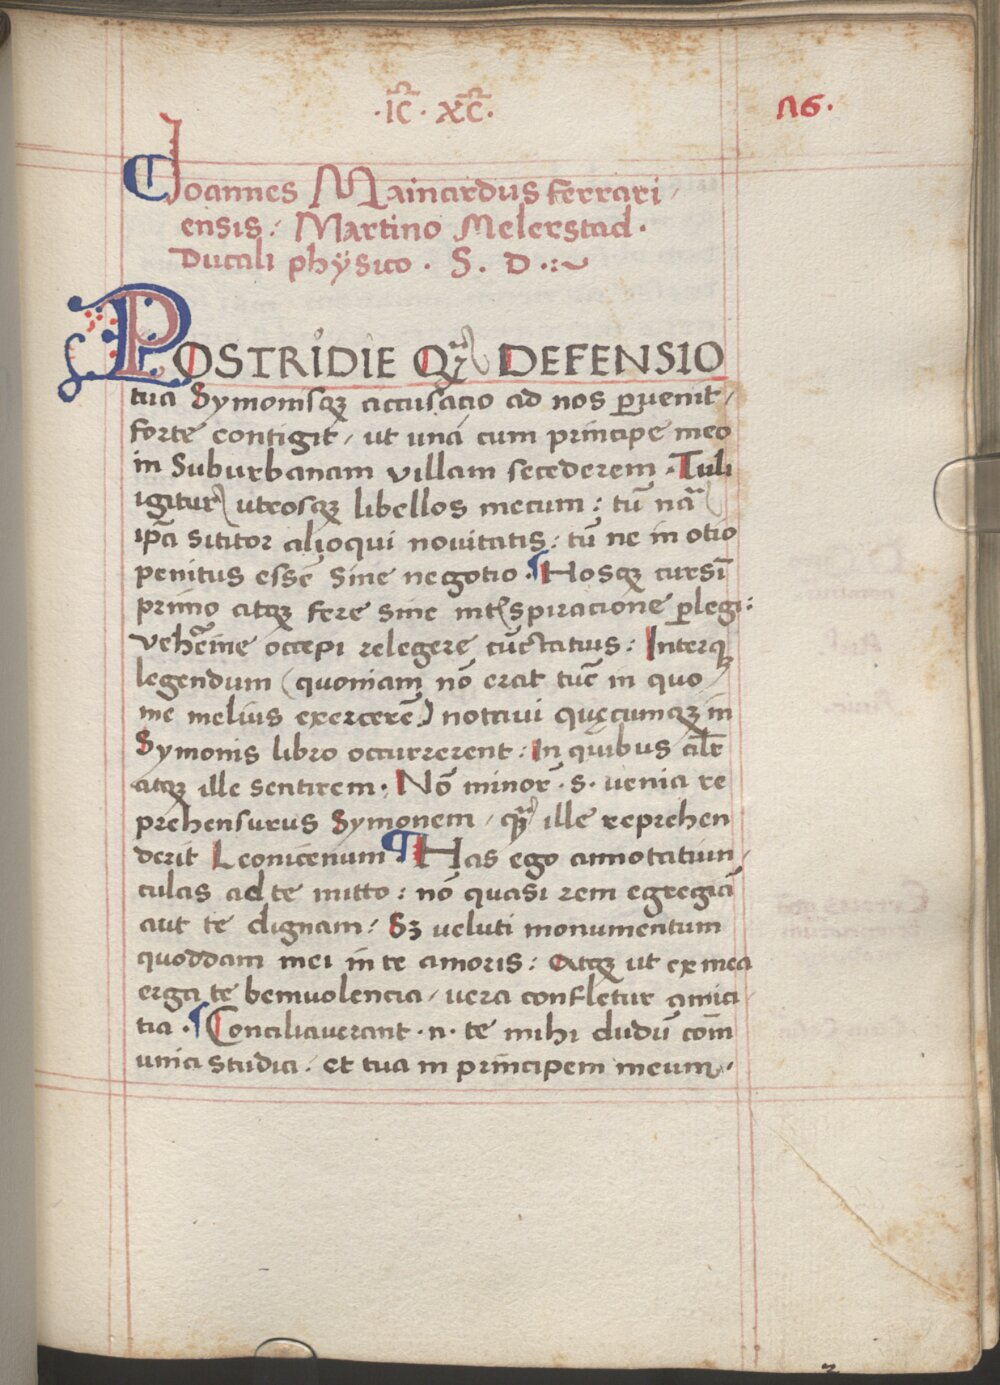 ·IC̄· XC̄·
116·
Joannes Mainardus ferrari/
ensis: Martino Melerstad·
Ducali phÿsico· S· D·:~
POSTRIDIE Qꝫ̃ DEFENSIO
tua Symonisqꝫ accusacio ad nos ꝑuenit/
forte contigit/ ut unã cum principe meo
in Suburbanam villam secederem· Tuli
igitur utrosqꝫ libellos mecum: tũ nã
ip̃a sititor alioqui nouitatis: tũ ne in otio
penitus esse sine negotio· ¶Hosqꝫ cursĩ
primo atqꝫ fere sine int̃spiracione ꝑlegi:
vehem̃ine occepi relegere cũctatius: Interqꝫ
legendum (quoniam nõ erat tũc in quo
me melius exercerẽ) notaui quęcumqꝫ in
Symonis libro occurrerent: In quibus al̃r
atqꝫ ille sentirem· Nõ minor̃· s· uenia re
prehensurus Symonem/ qꝫ̃ ille reprehen
derit Leonicenum ¶Has ego annotatiun/
culas ad te mitto: nõ quasi rem egregiã
aut te dignam: Sꝫ veluti monumentum
quoddam mei in te amoris: Atqꝫ ut ex mea
erga te beniuolencia/ uera confletur amici/
tia· ¶Conciliauerant· n· te mihi dudũ com̃
unia studia: et tua in principem meum·